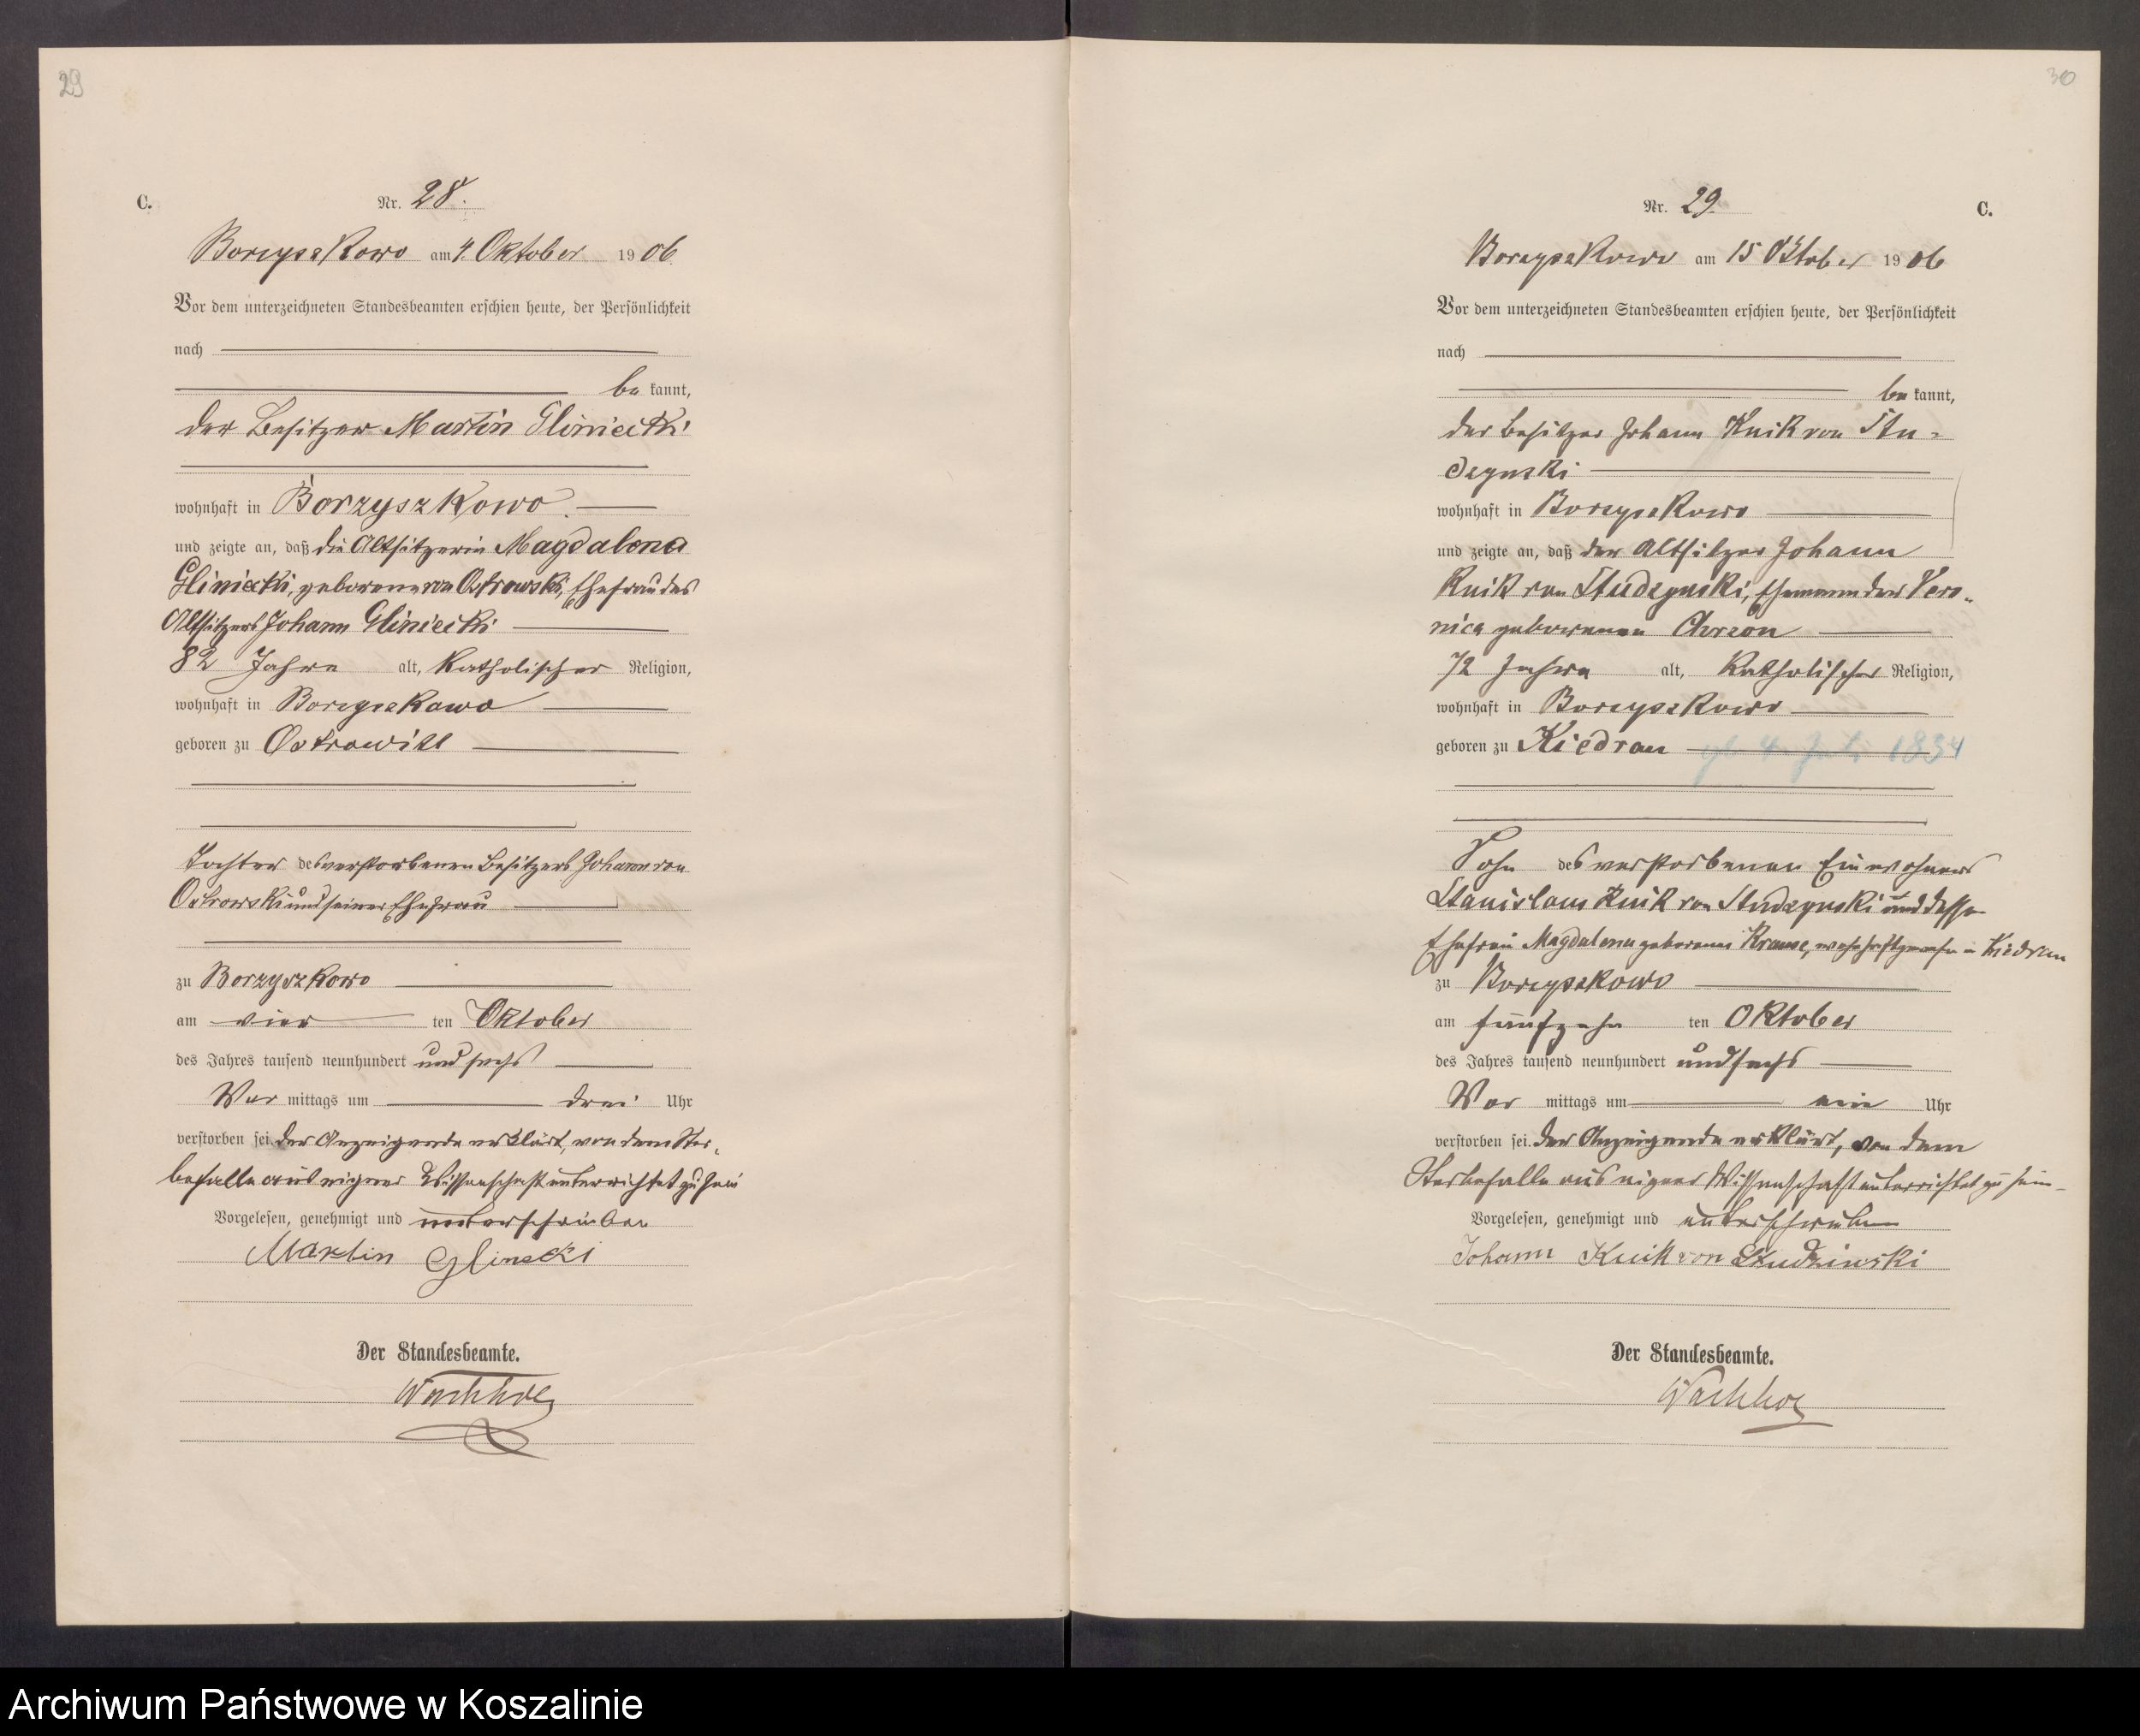 29
C.
Nr. 28.
Borzyszkowo am 4. Oktober 1906
Vor dem unterzeichneten Standesbeamten erschien heute, der Persönlichkeit
nach
be kannt,
der Besitzer Martin Gliniecki
wohnhaft in Borzyszkowo.
und zeigte an, daß die Altsitzerin Magdalena
Gliniecki, geborene von Ostrowski, Ehefrau des
Altsitzers Johann Gliniecki
82 Jahre alt, katholischer Religion,
wohnhaft in Borzyszkowo
geboren zu Ostrowitt
Tochter des verstorbenen Besitzers Johann von
Ostrowski und seiner Ehefrau
zu Borzyszkowo
am vier ten Oktober
des Jahres tausend neunhundert und sechs
Vor mittags um drei Uhr
verstorben sei. Der Anzeigende erklärt, von dem Ster-
befalle aus eigner Wissenschaft unterrichtet zu sein
Vorgelesen, genehmigt und unterschrieben
Martin Glinecki
Der Standesbeamte.
Wachholz
30
Nr. 29.
C.
Borzyszkowo am 15 Oktober 1906
Vor dem unterzeichneten Standesbeamten erschien heute, der Persönlichkeit
nach
be kannt,
der Besitzer Johann Knik von Stu-
dzynski
wohnhaft in Borzyszkowo
und zeigte an, daß der Altsitzer Johann
Knik von Studzynski, Ehemann der Vero-
nica geborenen Chrzon
72 Jahre alt, katholischer Religion,
wohnhaft in Borzyszkowo
geboren zu Kiedrau 1834
Sohn des verstorbenen Einwohners
Stanislaus Knik von Studzynski und dessen
Ehefrau Magdalena geborenen Krause, wohnhaft gewesen in Kiedrau
zu Borzyszkowo
am fünfzehn ten Oktober
des Jahres tausend neunhundert und sechs
Vor mittags um ein Uhr
verstorben sei. Der Anzeigende erklärt, von dem
Sterbefalle aus eigner Wissenschaft unterrichtet zu sein
Vorgelesen, genehmigt und unterschrieben
Johann Knik von Studzinski
Der Standesbeamte.
Wachholz
Archiwum Państwowe w Koszalinie